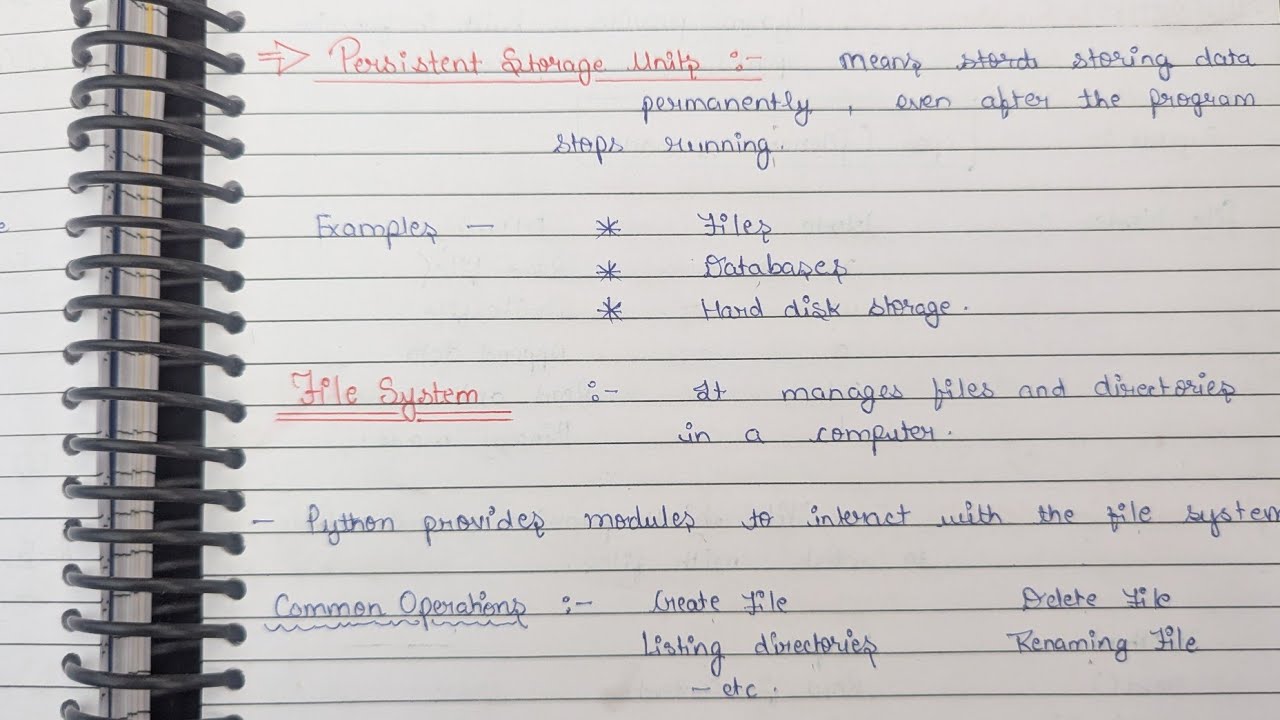 ⇒ Persistent Storage Units :- means stords storing data
permanently, even after the program
stops running.
Examples - * Files
* Databases
* Hard disk storage.
File System :- It manages files and directories
in a computer.
- Python provides modules to interact with the file system
Common Operations :- Create File Delete File
Listing directories Renaming File
- etc.